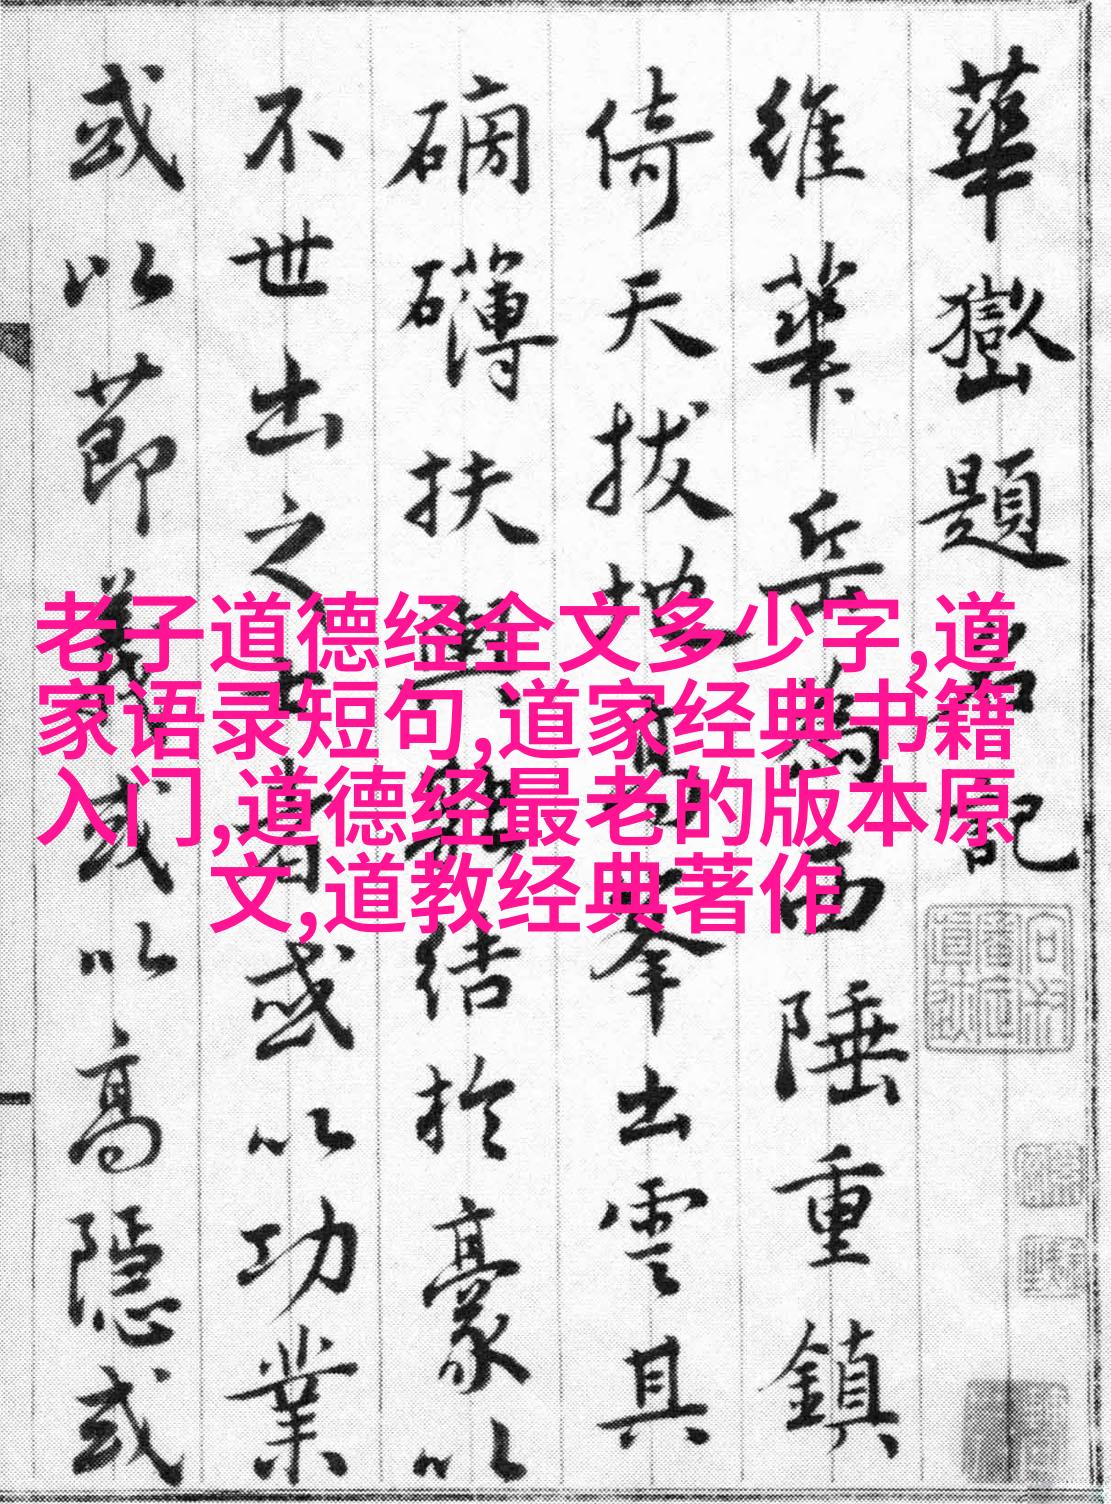 華嶽題名記
維華岳為西陲重鎮
倚天拔地峯出雲具
磅礴扶輿結於豪以
不世出之士者或以功業
或以節義或以高隱或
老子道德经全文多少字,道
家语录短句,道家经典书籍
入门,道德经最老的版本原
文,道教经典著作